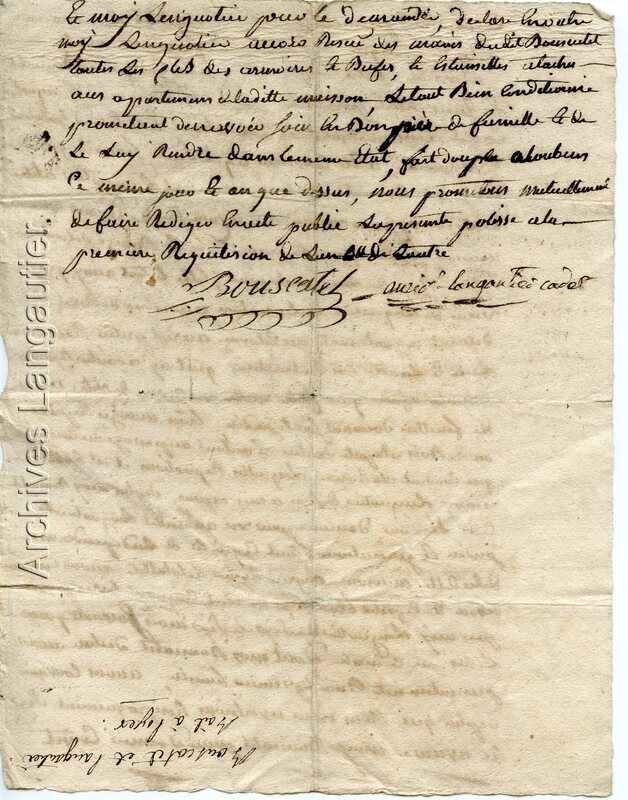 Et moy Lengautier pour le demandé, declare En outre
moy Lengautier avoir Resçu des mains dudit Bouscatel
toutes Les clés des armoires le Bufet, le Estansselles ataches
aux apartemens de laditte maison Le tout Bien Conditionné
promettent den avoir soin En Bon père de famille et de
Le Luy Rendre dans le meme Etat, fait double a
Ce meme jour Et an que dessus, nous promettons mutuellement
de faire Rediger En acte public La presente polisse a la
première Requisission de Lun ou de Lautre
Bouscatel langautier cadet
Bouscatel et langautier
Bail à loyer.
Archives Langautier.